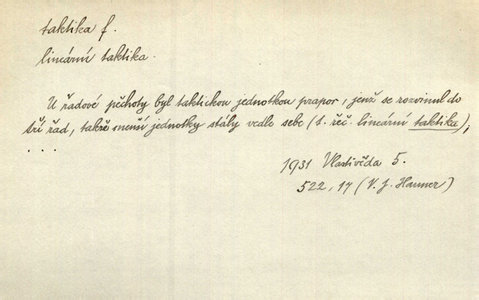 taktika f.
lineární taktika.
U řadové pěchoty byl taktickou jednotkou prapor, jenž se rozvinul do
tří řad, takže menší jednotky stály vedle sebe (t. řeč. lineární taktika),
. . .
1931 Vlastivěda 5.
522, 17 (V. J. Hauner)